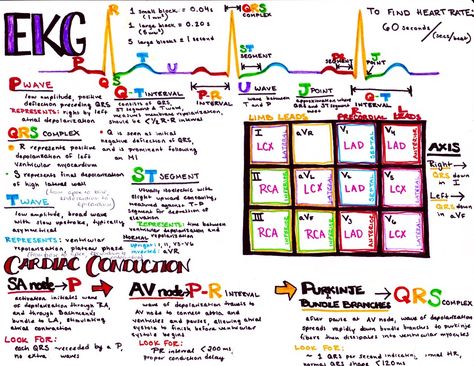 EKG
R
1 small block = 0.04s
(1 mm²)
1 large block = 0.20s
(5 mm²)
5 large blocks = 1 second
QRS
COMPLEX
TO FIND HEART RATE:
60 seconds/
P
Q
S
T
U
ST
SEGMENT
PR
SEGMENT
J
POINT
P-R
INTERVAL
Q-T
INTERVAL
P WAVE
low amplitude, positive
deflection preceding QRS
REPRESENTS: right & left
atrial depolarization
Q-T INTERVAL
consists of QRS,
ST segment & T wave,
measures ventricular
should be < 1/2 R-R interval
U WAVE
wave between
T and P
J POINT
approximation where
QRS ends and ST segment
QRS COMPLEX
R represents positive
depolarization of left
ventricular myocardium
S represents final depolarization
of high lateral wall
Q is seen as initial
negative deflection of QRS,
and is prominent following
an MI
ST SEGMENT
Usually isoelectric with
slight upward concavity,
measured against T-P
segment for depression or
elevation
REPRESENTS: time
between ventricular
depolarization and
repolarization
T WAVE
low amplitude, broad wave
with slow upstroke, typically
asymmetrical
REPRESENTS: ventricular
repolarization plateau phase
NORMAL
upright: I, II, V3-V6
inverted: aVR
LIMB LEADS
PRECORDIAL LEADS
I LCX LATERAL
aVR
V1 LAD SEPTAL
V4 LAD ANTERIOR
II RCA INFERIOR
aVL LCX LATERAL
V2 LAD SEPTAL
V5 LCX LATERAL
III RCA INFERIOR
aVF RCA INFERIOR
V3 LAD ANTERIOR
V6 LCX LATERAL
AXIS
Right →
QRS
down
in I
Left →
QRS
down
in aVF
CARDIAC CONDUCTION
SA node → P
activation initiates wave
of depolarization through RA,
and through Bachmann's
bundle to LA, stimulating
atrial contraction
LOOK FOR:
each QRS preceded by a P,
no extra waves
AV node → P-R INTERVAL
wave of depolarization travels to
AV node to connect atria and
ventricles and pauses, allowing atrial
systole to finish before ventricular
systole begins
LOOK FOR:
PR interval < 200ms,
proper conduction delay
PURKINJE
BUNDLE BRANCHES → QRS COMPLEX
after pause at AV node, wave of depolarization
spreads rapidly down bundle branches to purkinje
fibers then dissipates into ventricular myocytes
LOOK FOR:
~ 1 QRS per second indicating normal HR,
normal QRS shape < 120ms